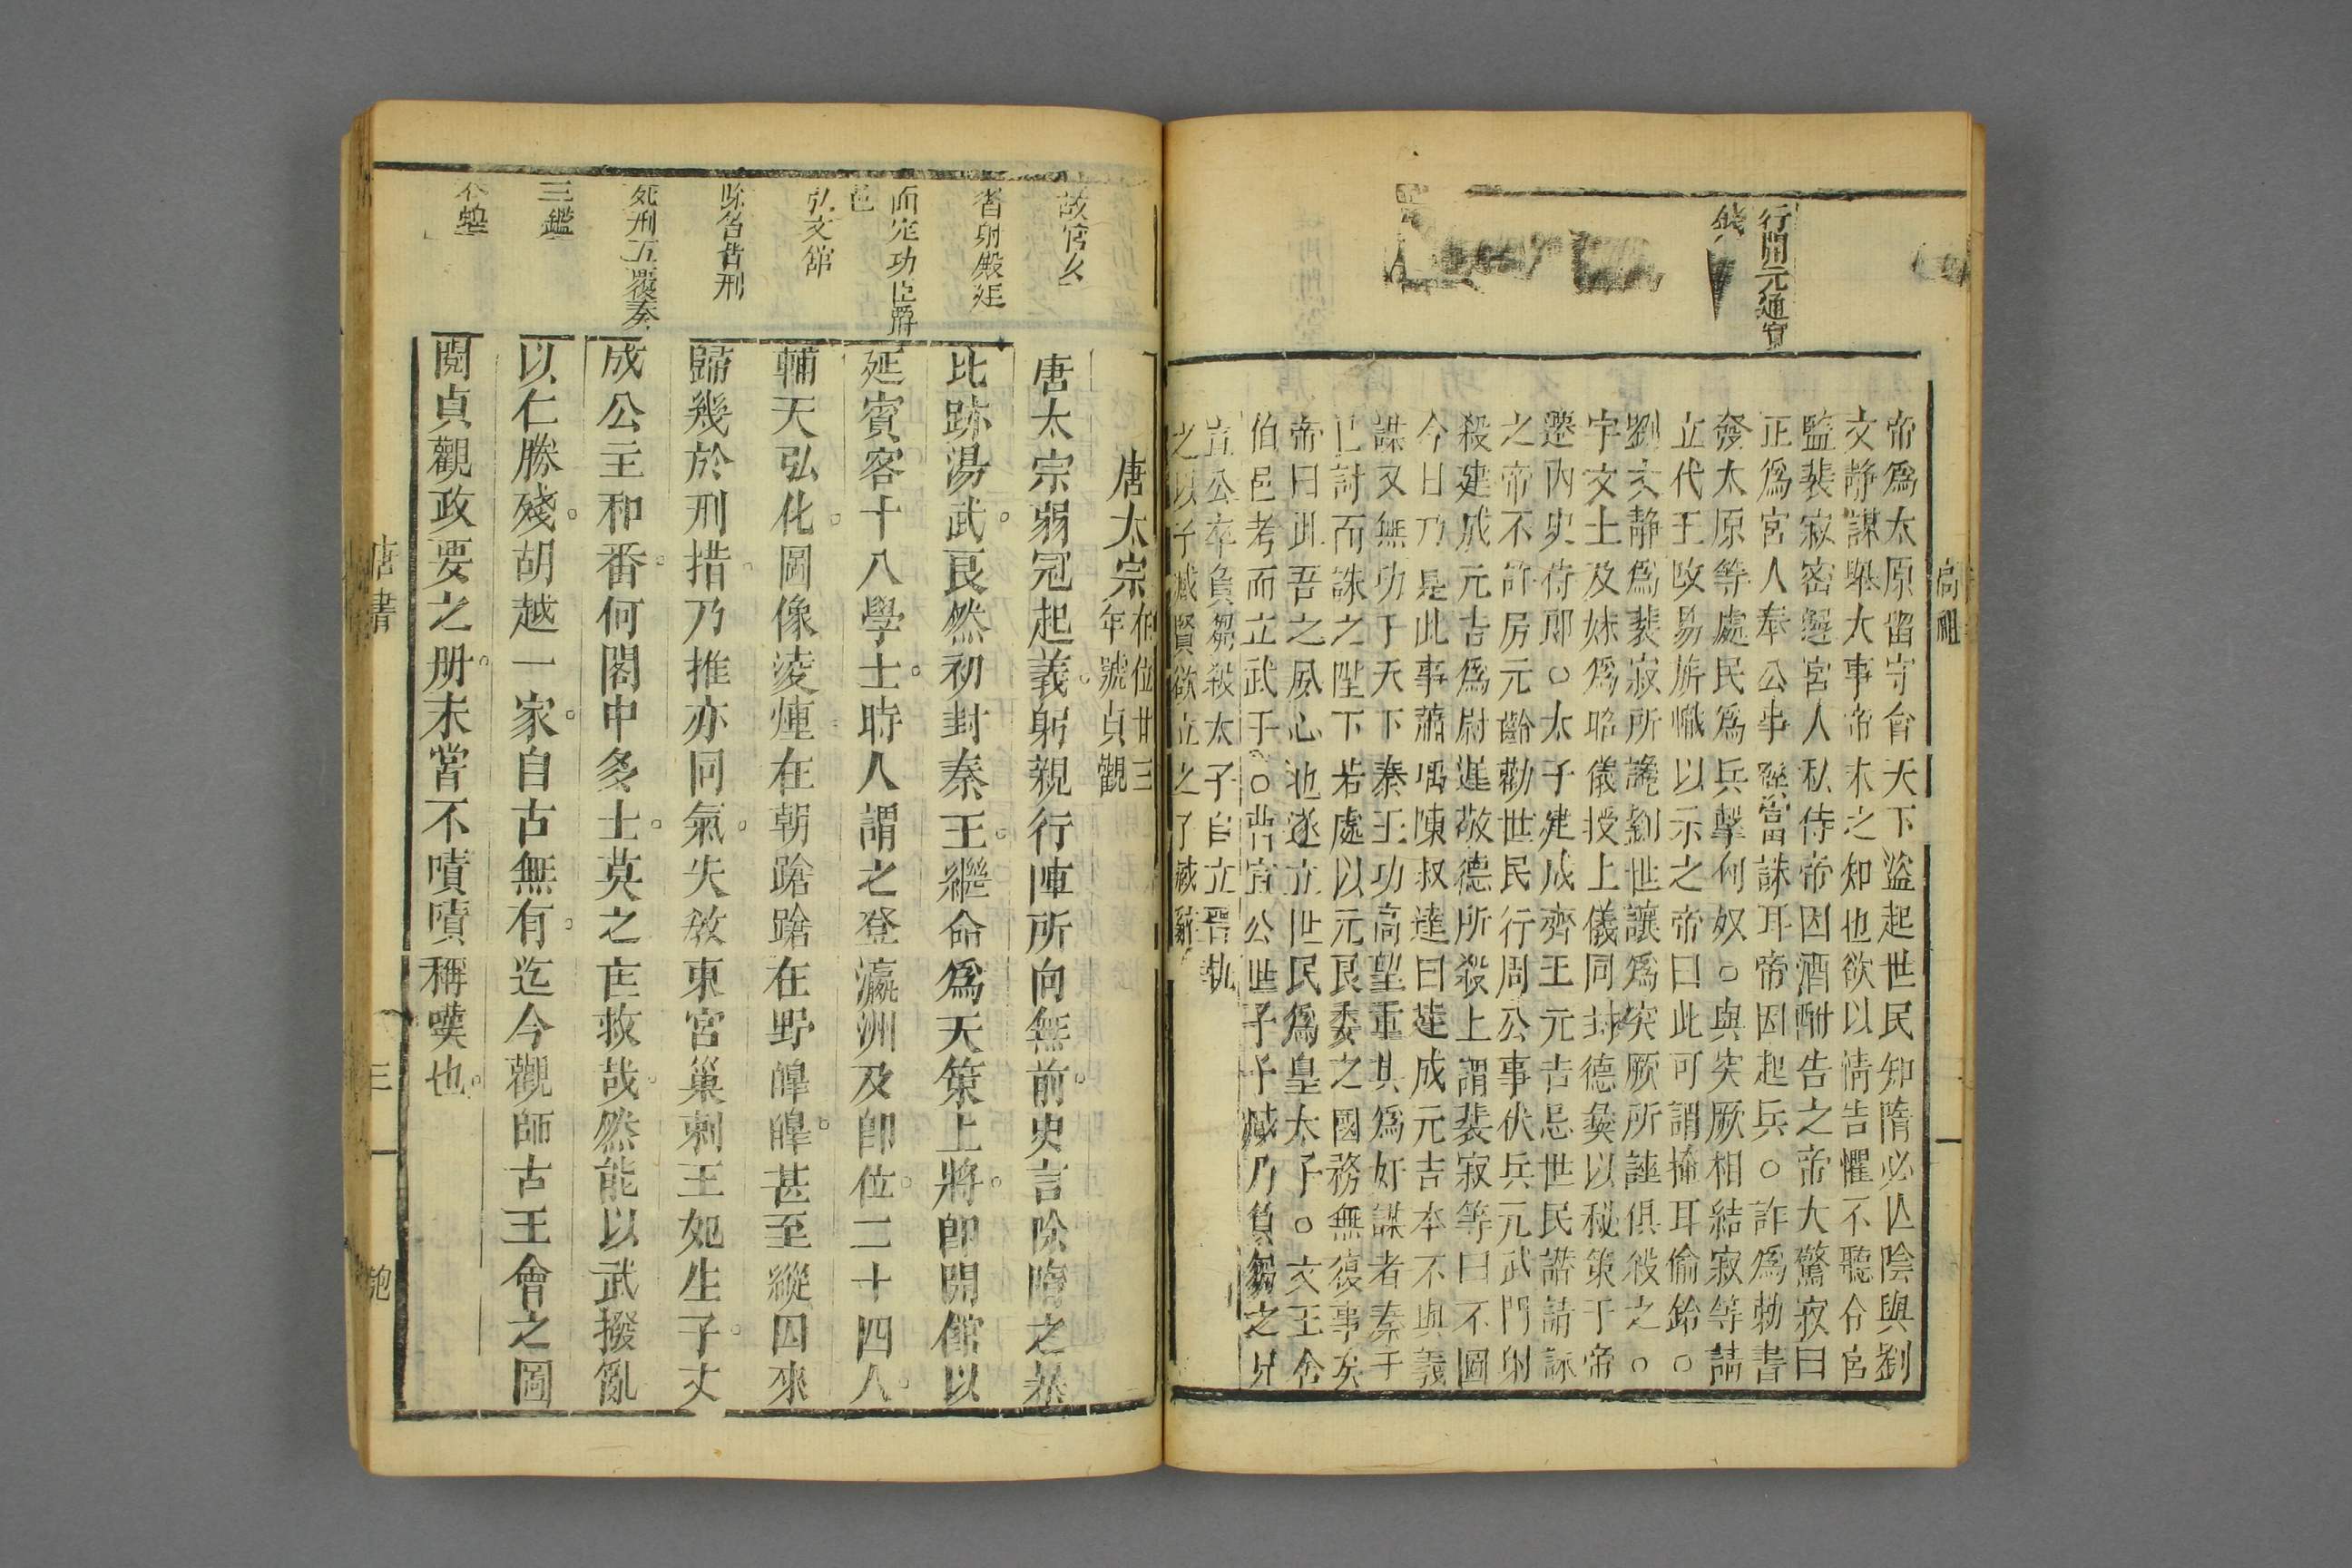 高祖
行開元通寶
錢
帝爲太原留守會天下盜起世民知隋必亾陰與劉
文靜謀舉大事帝未之知也欲以情告懼不聽令宮
監裴寂密選宮人私侍帝因酒酣告之帝大驚寂曰
正爲宮人奉公事發當誅耳帝因起兵○詐爲勅書
發太原等處民爲兵擊匈奴○與突厥相結寂等請
立代王改易旂幟以示之帝曰此可謂掩耳偷鈴○
劉文静爲裴寂所譖劉世讓爲突厥所誣俱殺之○
宇文士及妹爲昭儀授上儀同封德彛以秘策于帝
遷內史侍郎○太子建成齊王元吉忌世民譖請誅
之帝不許房元齡勸世民行周公事伏兵元武門射
殺建成元吉爲尉遲敬德所殺上謂裴寂等曰不圖
今日乃是此事蕭瑀陳叔達曰建成元吉本不與義
謀又無功于天下秦王功高望重其爲奸謀者秦王
已討而誅之陛下若處以元良委之國務無復事矣
帝曰此吾之夙心也遂立世民爲皇太子○文王舍
伯邑考而立武王○曹宣公世子子臧乃負芻之兄
宣公卒負芻殺太子自立晋執
之以子臧賢欲立之子臧辭
唐太宗 在位廿三年號貞觀
唐太宗弱冠起義。躬親行陣所向無前。史言除隋之暴
比跡湯武。良然初封秦王。繼命爲天策上將。卽開館以
延賓客十八學士。時人謂之登瀛洲及卽位。二十四人。
輔天弘化。圖像淩煙。在朝蹌蹌在野皥皥。甚至縱囚來
歸幾於刑措。乃推亦同氣。失敎東宮巢剌王妃生子。丈
成公主和番。何閣中多士。莫之匡救哉。然能以武撥亂
以仁勝殘。胡越一家。自古無有。迄今觀師古王會之圖
閱貞觀政要之册。未嘗不嘖嘖稱嘆也。
放宮女
習射殿廷
面定功臣爵
邑
弘文館
除笞背刑
死刑五覆奏
三鑑
吞蝗
唐書
三